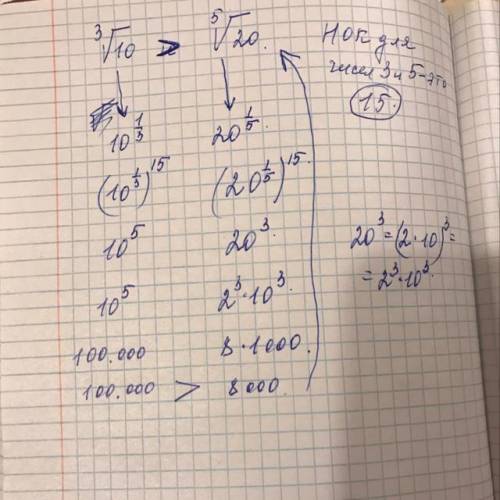 ∛10 > ⁵√20.
10^(1/3) 20^(1/5)
(10^(1/3))^15 (20^(1/5))^15.
10^5 20^3
10^5 2^3·10^3.
100.000 8·1000.
100.000 > 8000.
НОК для
чисел 3 и 5-это
15.
20^3=(2·10)^3=
=2^3·10^3.